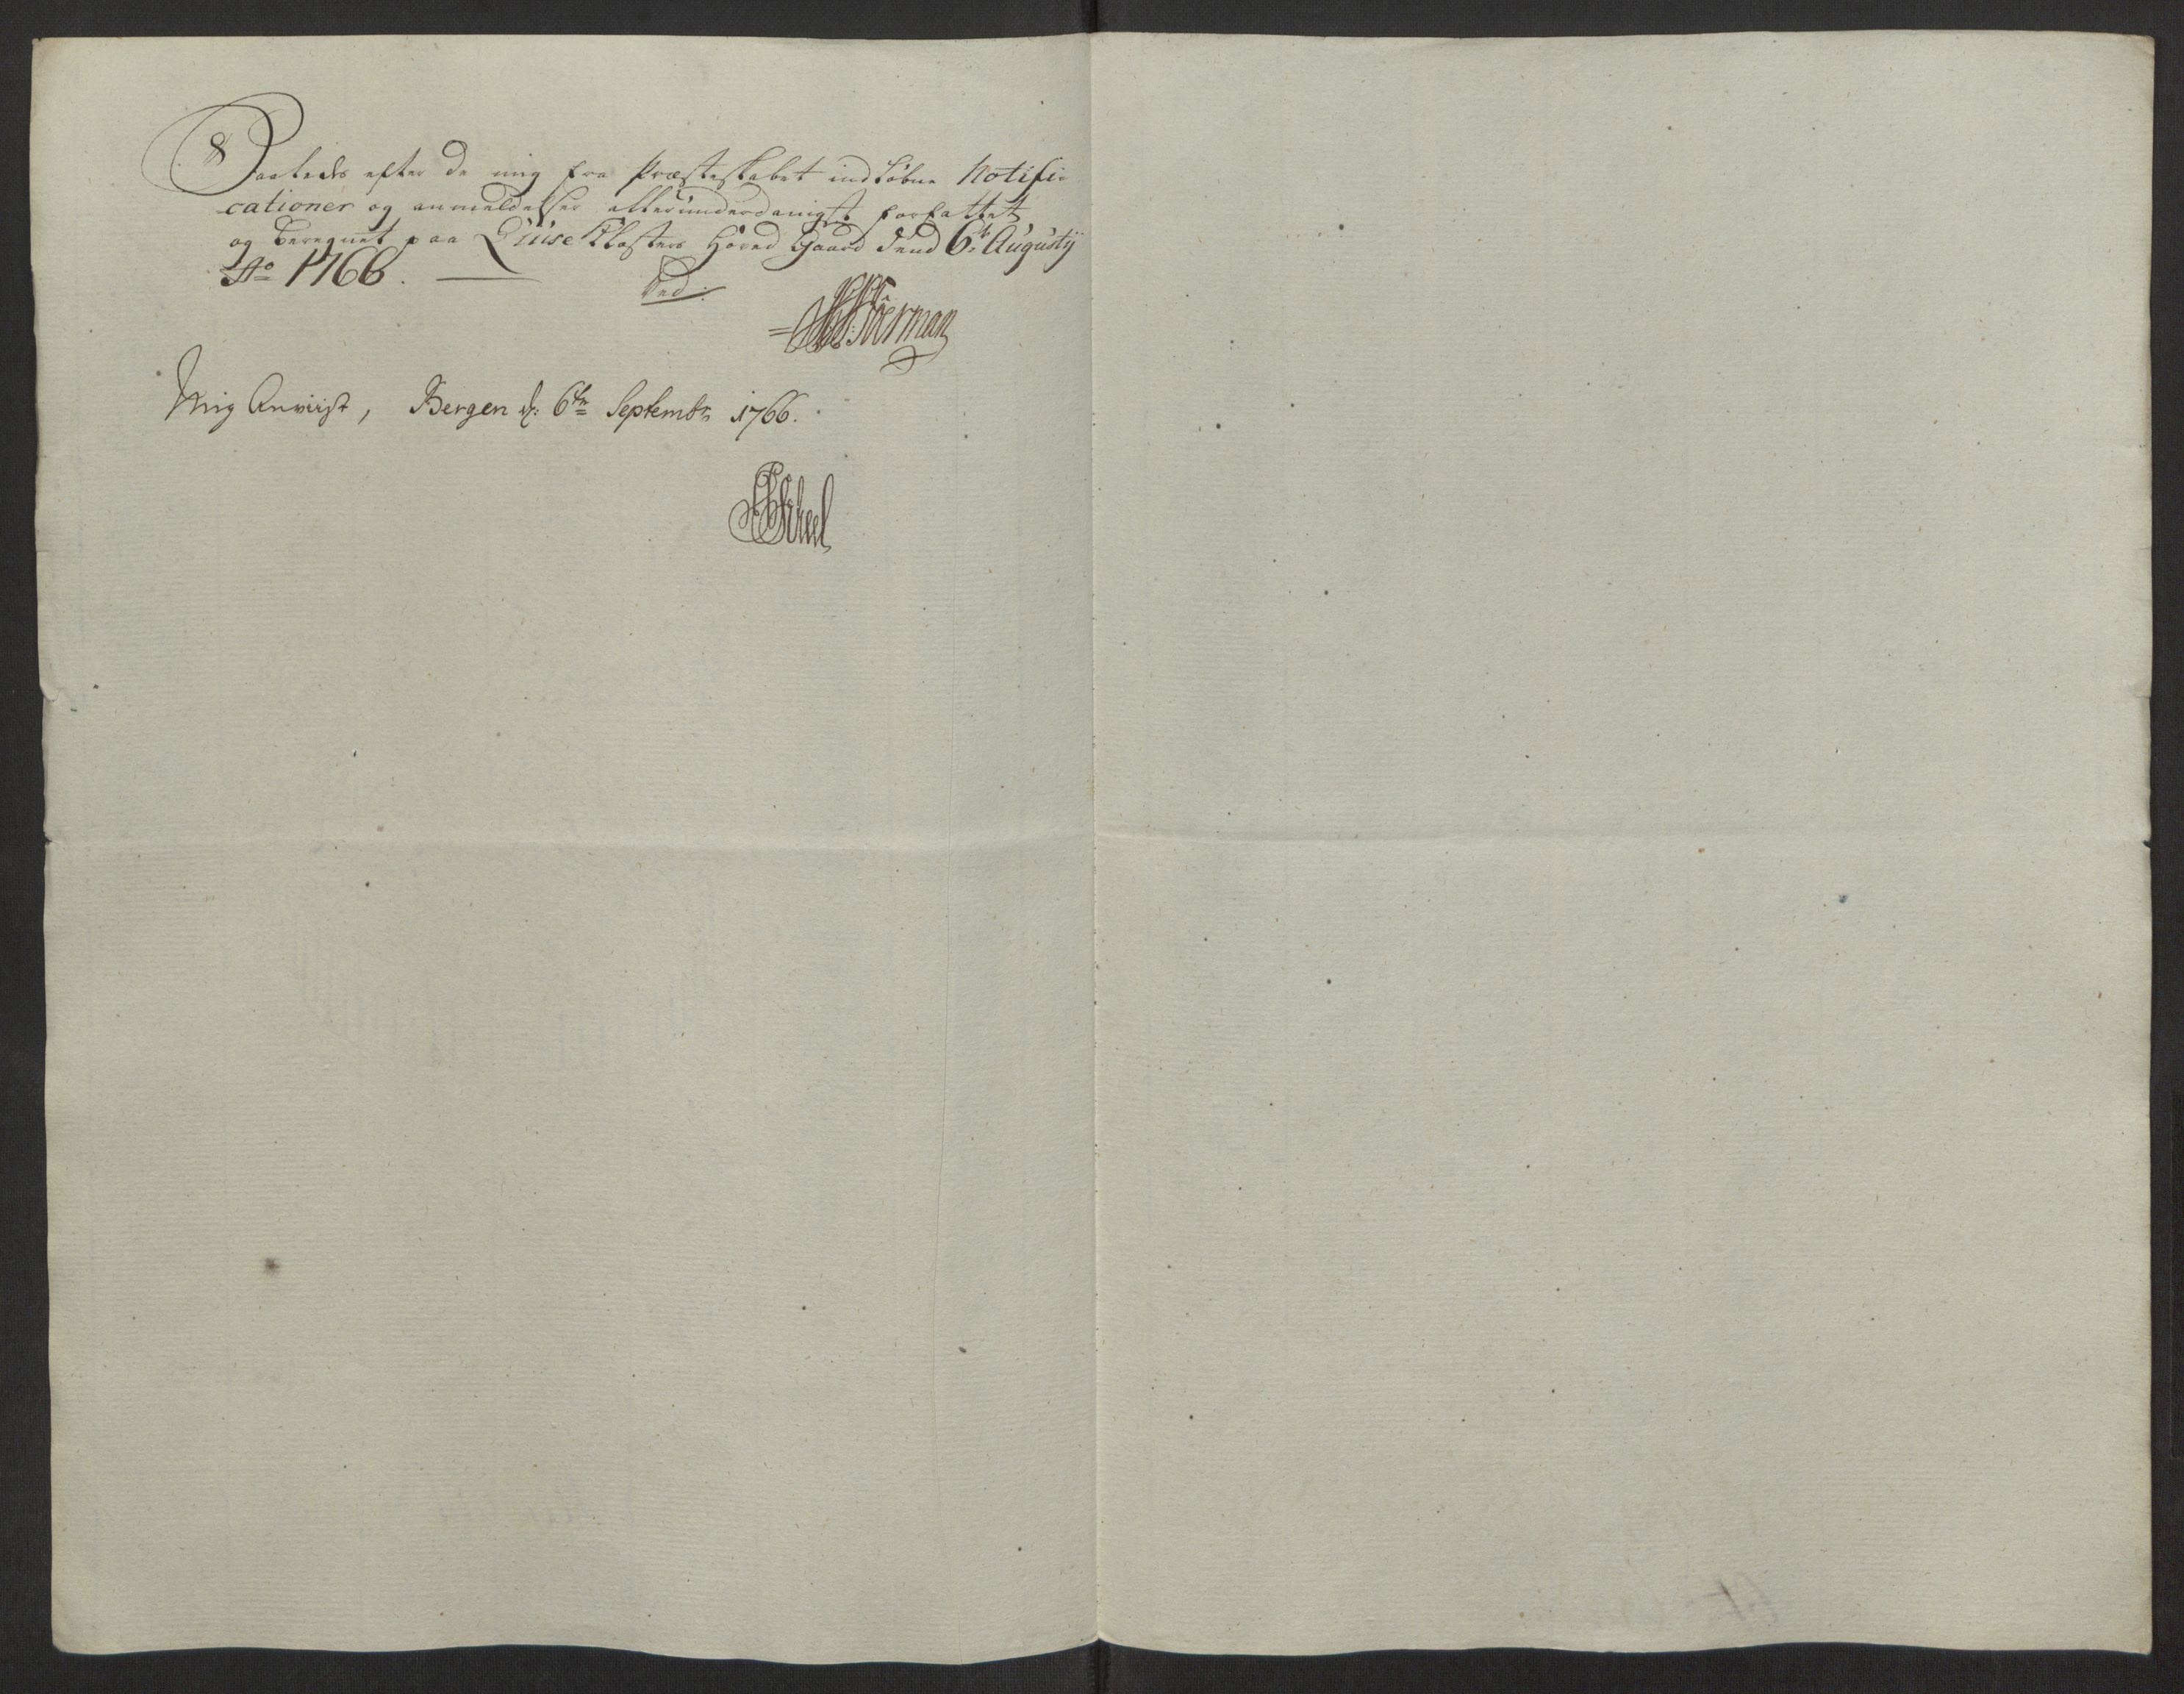 Saaledes efter de mig fra Præsteskabet indløbne Notifi-
cationer og anmeldelser allerunderdanigst forfattet
og beregnet paa Lüse Klosters Hoved Gaard dend 6te Augustij
Ao 1766.
Ved.
Mig Anviist, Bergen d: 6te Septembr 1766.